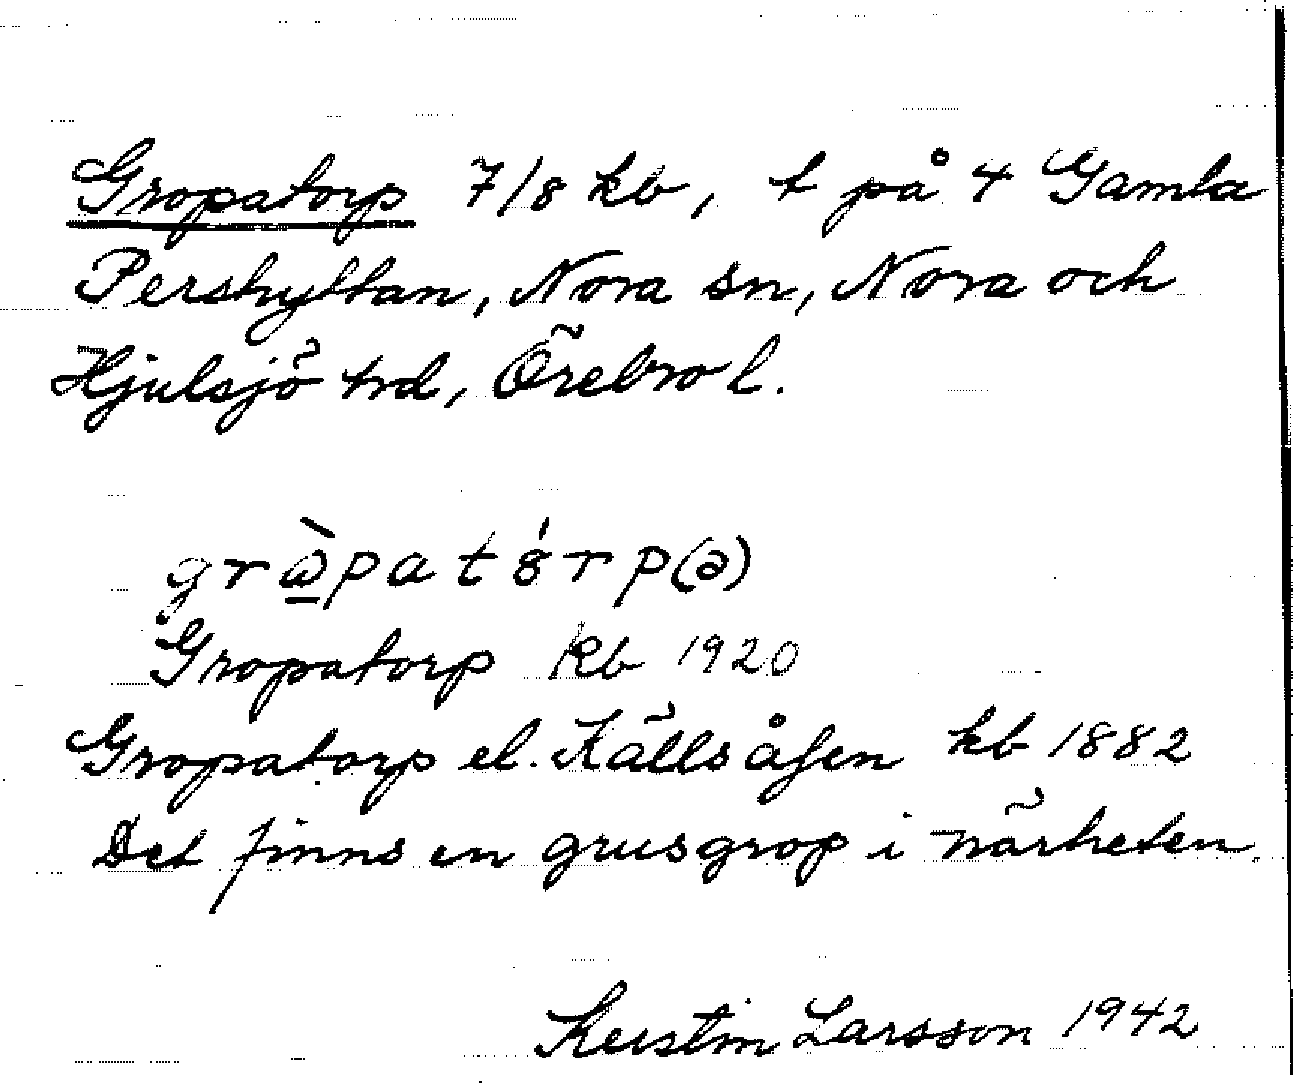 Gropatorp 7/8 kb, t på 4 Gamla
Pershyttan, Nora sn, Nora och
Hjulsjö trd, Örebro l.
grὼ̲patȣ́rp(ə)
Gropatorp kb 1920
Gropatorp el. Källsåsen kb 1882
Det finns en grusgrop i närheten.
Kerstin Larsson 1942